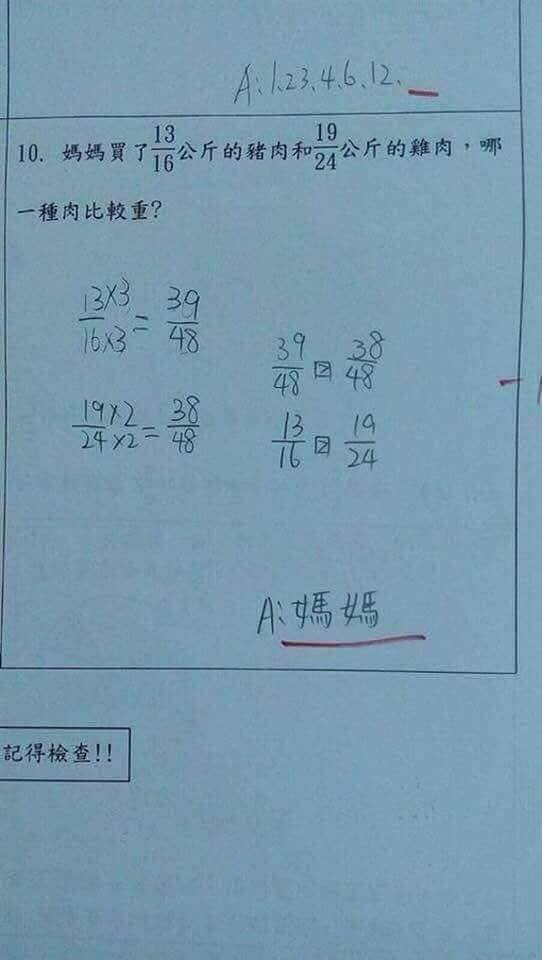 A:1.2.3.4.6.12.
10. 媽媽買了13/16公斤的豬肉和19/24公斤的雞肉，哪
一種肉比較重?
13×3/16×3=39/48
19×2/24×2=38/48
39/48 > 38/48
13/16 > 19/24
A:媽媽
記得檢查!!